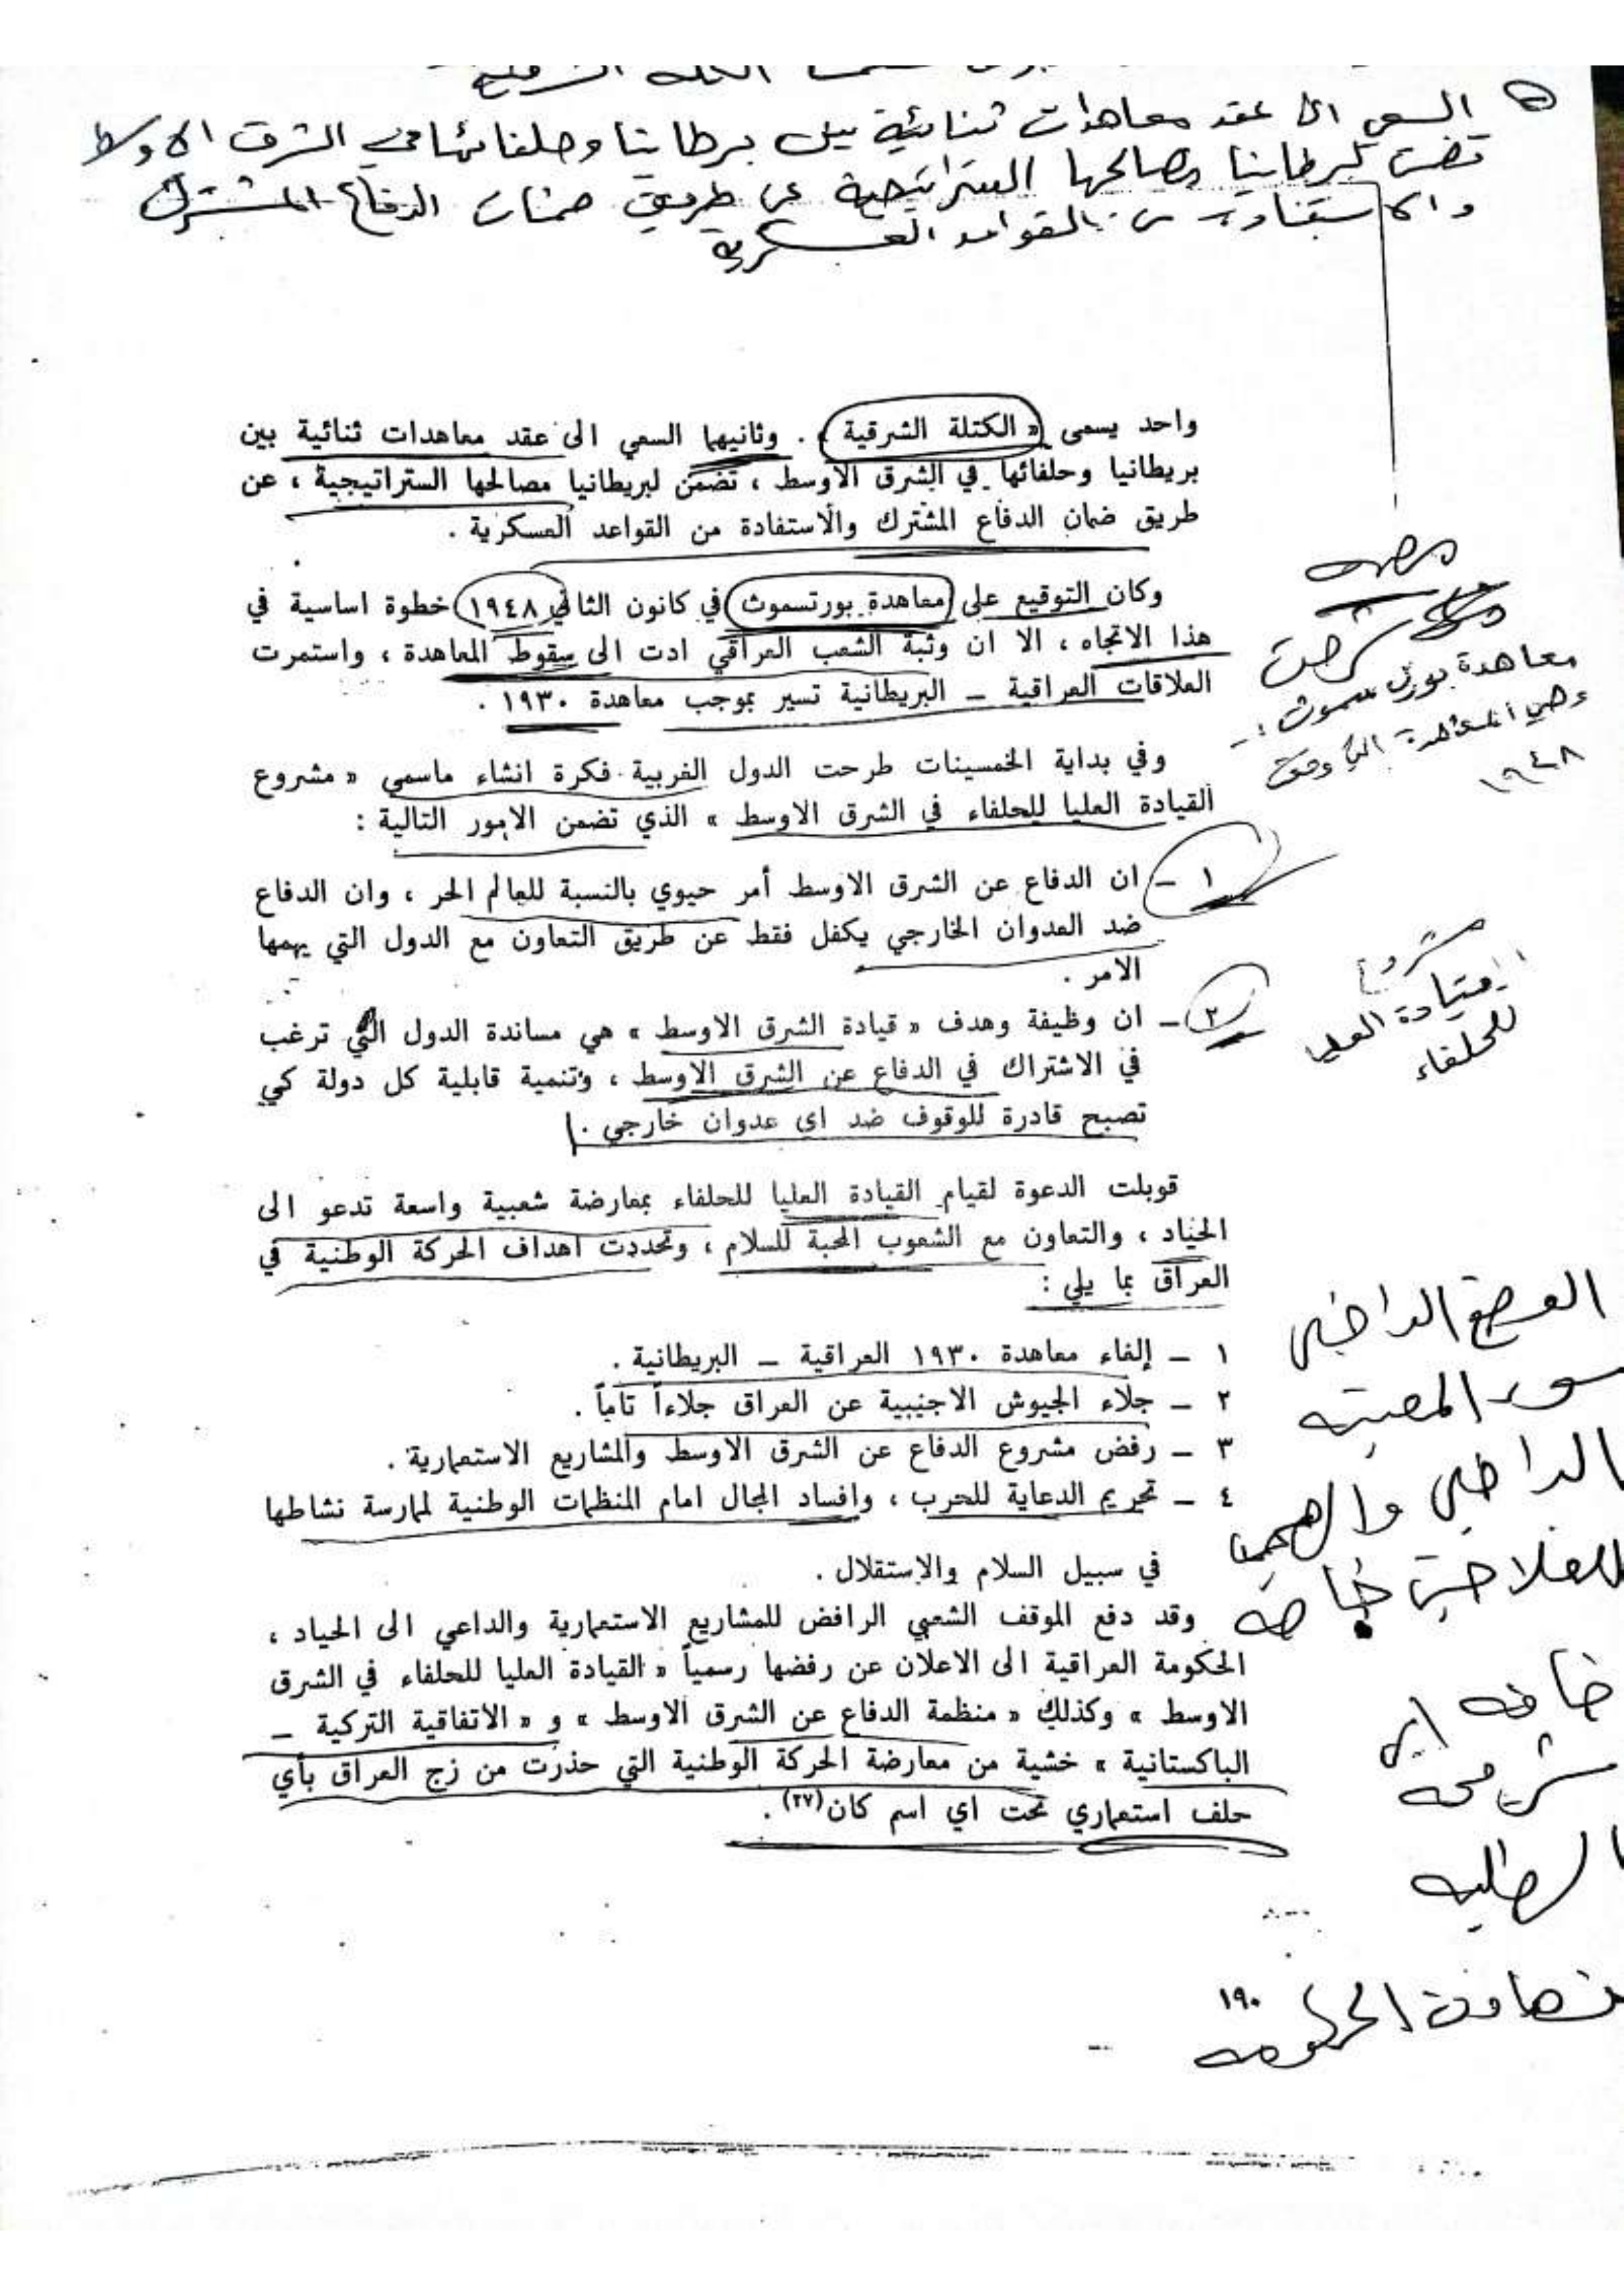 السعي الى عقد معاهدات ثنائية بين برطانيا وحلفائها في الشرق الاوسط
تضمن لبرطانيا مصالحها الستراتيجية عن طريق ضمان الدفاع المشترك
والاستفادة من القواعد العسكرية
واحد يسمى « الكتلة الشرقية » . وثانيهما السعي الى عقد معاهدات ثنائية بين
بريطانيا وحلفائها في الشرق الاوسط ، تضمن لبريطانيا مصالحها الستراتيجية ، عن
طريق ضمان الدفاع المشترك والاستفادة من القواعد العسكرية .
وكان التوقيع على معاهدة بورتسموث في كانون الثاني ١٩٤٨ خطوة اساسية في
هذا الاتجاه ، الا ان وثبة الشعب العراقي ادت الى سقوط المعاهدة ، واستمرت
العلاقات العراقية – البريطانية تسير بموجب معاهدة ١٩٣٠ .
معاهدة بورتسموث :-
وهي المعاهدة التي
١٩٤٨
وفي بداية الخمسينات طرحت الدول الغربية فكرة انشاء ماسمي « مشروع
القيادة العليا للحلفاء في الشرق الاوسط » الذي تضمن الامور التالية :
١ – ان الدفاع عن الشرق الاوسط أمر حيوي بالنسبة للعالم الحر ، وان الدفاع
ضد العدوان الخارجي يكفل فقط عن طريق التعاون مع الدول التي يهمها
الامر .
مشروع
القيادة العليا
للحلفاء
٢ – ان وظيفة وهدف « قيادة الشرق الاوسط » هي مساندة الدول التي ترغب
في الاشتراك في الدفاع عن الشرق الاوسط ، وتنمية قابلية كل دولة كي
تصبح قادرة للوقوف ضد اي عدوان خارجي .
قوبلت الدعوة لقيام القيادة العليا للحلفاء بمعارضة شعبية واسعة تدعو الى
الحياد ، والتعاون مع الشعوب المحبة للسلام ، وتحددت اهداف الحركة الوطنية في
العراق بما يلي :
١ – إلغاء معاهدة ١٩٣٠ العراقية – البريطانية .
٢ – جلاء الجيوش الاجنبية عن العراق جلاءاً تاماً .
٣ – رفض مشروع الدفاع عن الشرق الاوسط والمشاريع الاستعمارية .
٤ – تحريم الدعاية للحرب ، وافساد المجال امام المنظمات الوطنية لممارسة نشاطها
في سبيل السلام والاستقلال .
الوضع الداخلي
سوء المعيشه
الداخلي والهجرة
للفلاحين خاصه
وقد دفع الموقف الشعبي الرافض للمشاريع الاستعمارية والداعي الى الحياد ،
الحكومة العراقية الى الاعلان عن رفضها رسمياً « القيادة العليا للحلفاء في الشرق
الاوسط » وكذلك « منظمة الدفاع عن الشرق الاوسط » و « الاتفاقية التركية –
الباكستانية » خشية من معارضة الحركة الوطنية التي حذرت من زج العراق بأي
حلف استعماري تحت اي اسم كان(٢٧) .
١٩٠